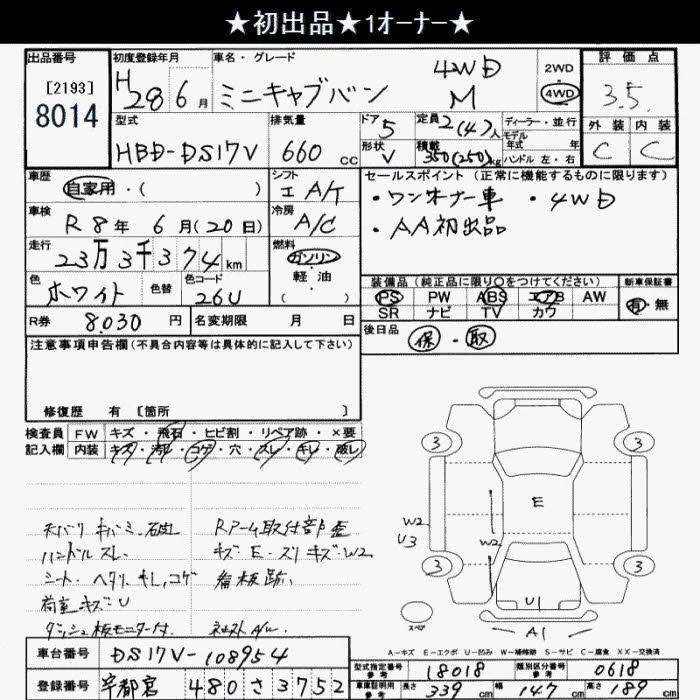 ★初出品★1オーナー★
出品番号
[2193]
8014
初度登録年月
H 28年 6月
車名・グレード
ミニキャブバン
4WD
M
2WD
4WD
評価点
3.5
外装 内装
C C
型式
HBD-DS17V
排気量
660 cc
ドア 5
形状 V
定員 2(4)人
積載 350(250)kg
ディーラー・並行
モデル年式 年
ハンドル 左・右
車歴
自家用・( )
シフト
エ A/T
車検
R 8年 6月(20日)
冷房
A/C
走行
23万3千374km
燃料
ガソリン
軽油
( )
色
ホワイト
色替
色コード
26U
R券 8,030円
名変期限 月 日
セールスポイント(正常に機能するものに限ります)
・ワンオーナー車 ・4WD
・AA初出品
装備品(純正品に限り○をつけてください)
PS PW ABS エアB AW
SR ナビ TV カワ
新車保証書
有・無
後日品
保・取
注意事項申告欄(不具合内容等は具体的に記入して下さい)
修復歴 有 [箇所 ]
検査員 FW キズ・飛石・ヒビ割・リペア跡・×要
記入欄 内装 キズ・汚れ・コゲ・穴・スレ・キレ・破レ
天バリ キバミ、破レ
ハンドル スレ
シート、ヘタリ、キレ、コゲ
荷室キズ・U
ダッシュ板モニター付
Rアーム取付部歪
キズ E・スリキズ・W2
看板跡
社外A/W
3 3
E
W2
U3
W2
3 3
U1
A1
スペア
A-キズ E-エクボ U-凹み W-補修跡 S-サビ C-腐食 XX-交換済
車台番号 DS17V-108954
登録番号 宇都宮 480 さ 3752
型式指定番号 参考 18018
類別区分番号 参考 0618
車庫証明用 参考 長さ 339cm 幅 147cm 高さ 189cm